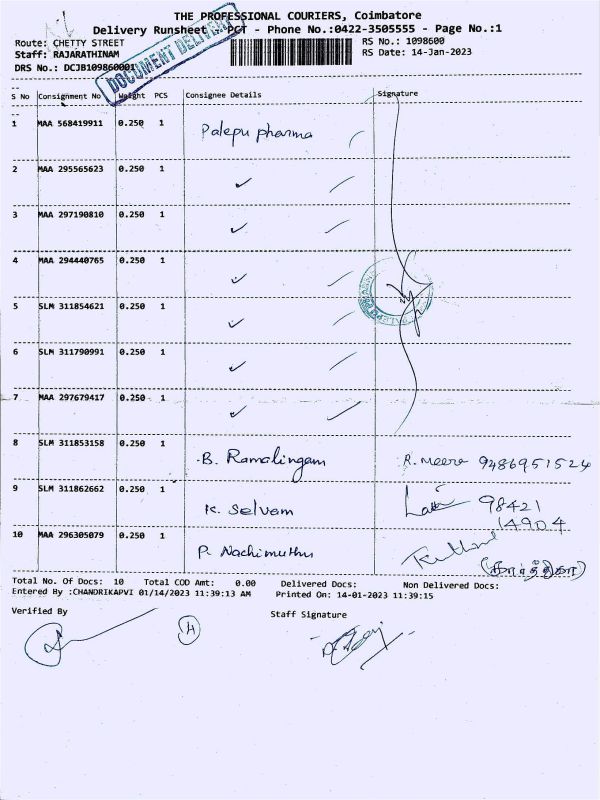 THE PROFESSIONAL COURIERS, Coimbatore
Delivery Runsheet - PCT - Phone No.:0422-3505555 - Page No.:1
Route: CHETTY STREET
RS No.: 1098600
Staff: RAJARATHINAM
RS Date: 14-Jan-2023
DRS No.: DCJB1098600001
DOCUMENT DELIVERY
S No Consignment No Weight PCS Consignee Details Signature
1 MAA 568419911 0.250 1 Palepu pharma
2 MAA 295565623 0.250 1
3 MAA 297190810 0.250 1
4 MAA 294440765 0.250 1
5 SLM 311854621 0.250 1
6 SLM 311790991 0.250 1
7 MAA 297679417 0.250 1
8 SLM 311853158 0.250 1 B. Ramalingam R. Meera 9486951524
9 SLM 311862662 0.250 1 K. Selvam 98421
14904
10 MAA 296305079 0.250 1 P. Nachimuthu
(கார்த்திகா)
Total No. Of Docs: 10 Total COD Amt: 0.00 Delivered Docs: Non Delivered Docs:
Entered By :CHANDRIKAPVI 01/14/2023 11:39:13 AM Printed On: 14-01-2023 11:39:15
Verified By Staff Signature